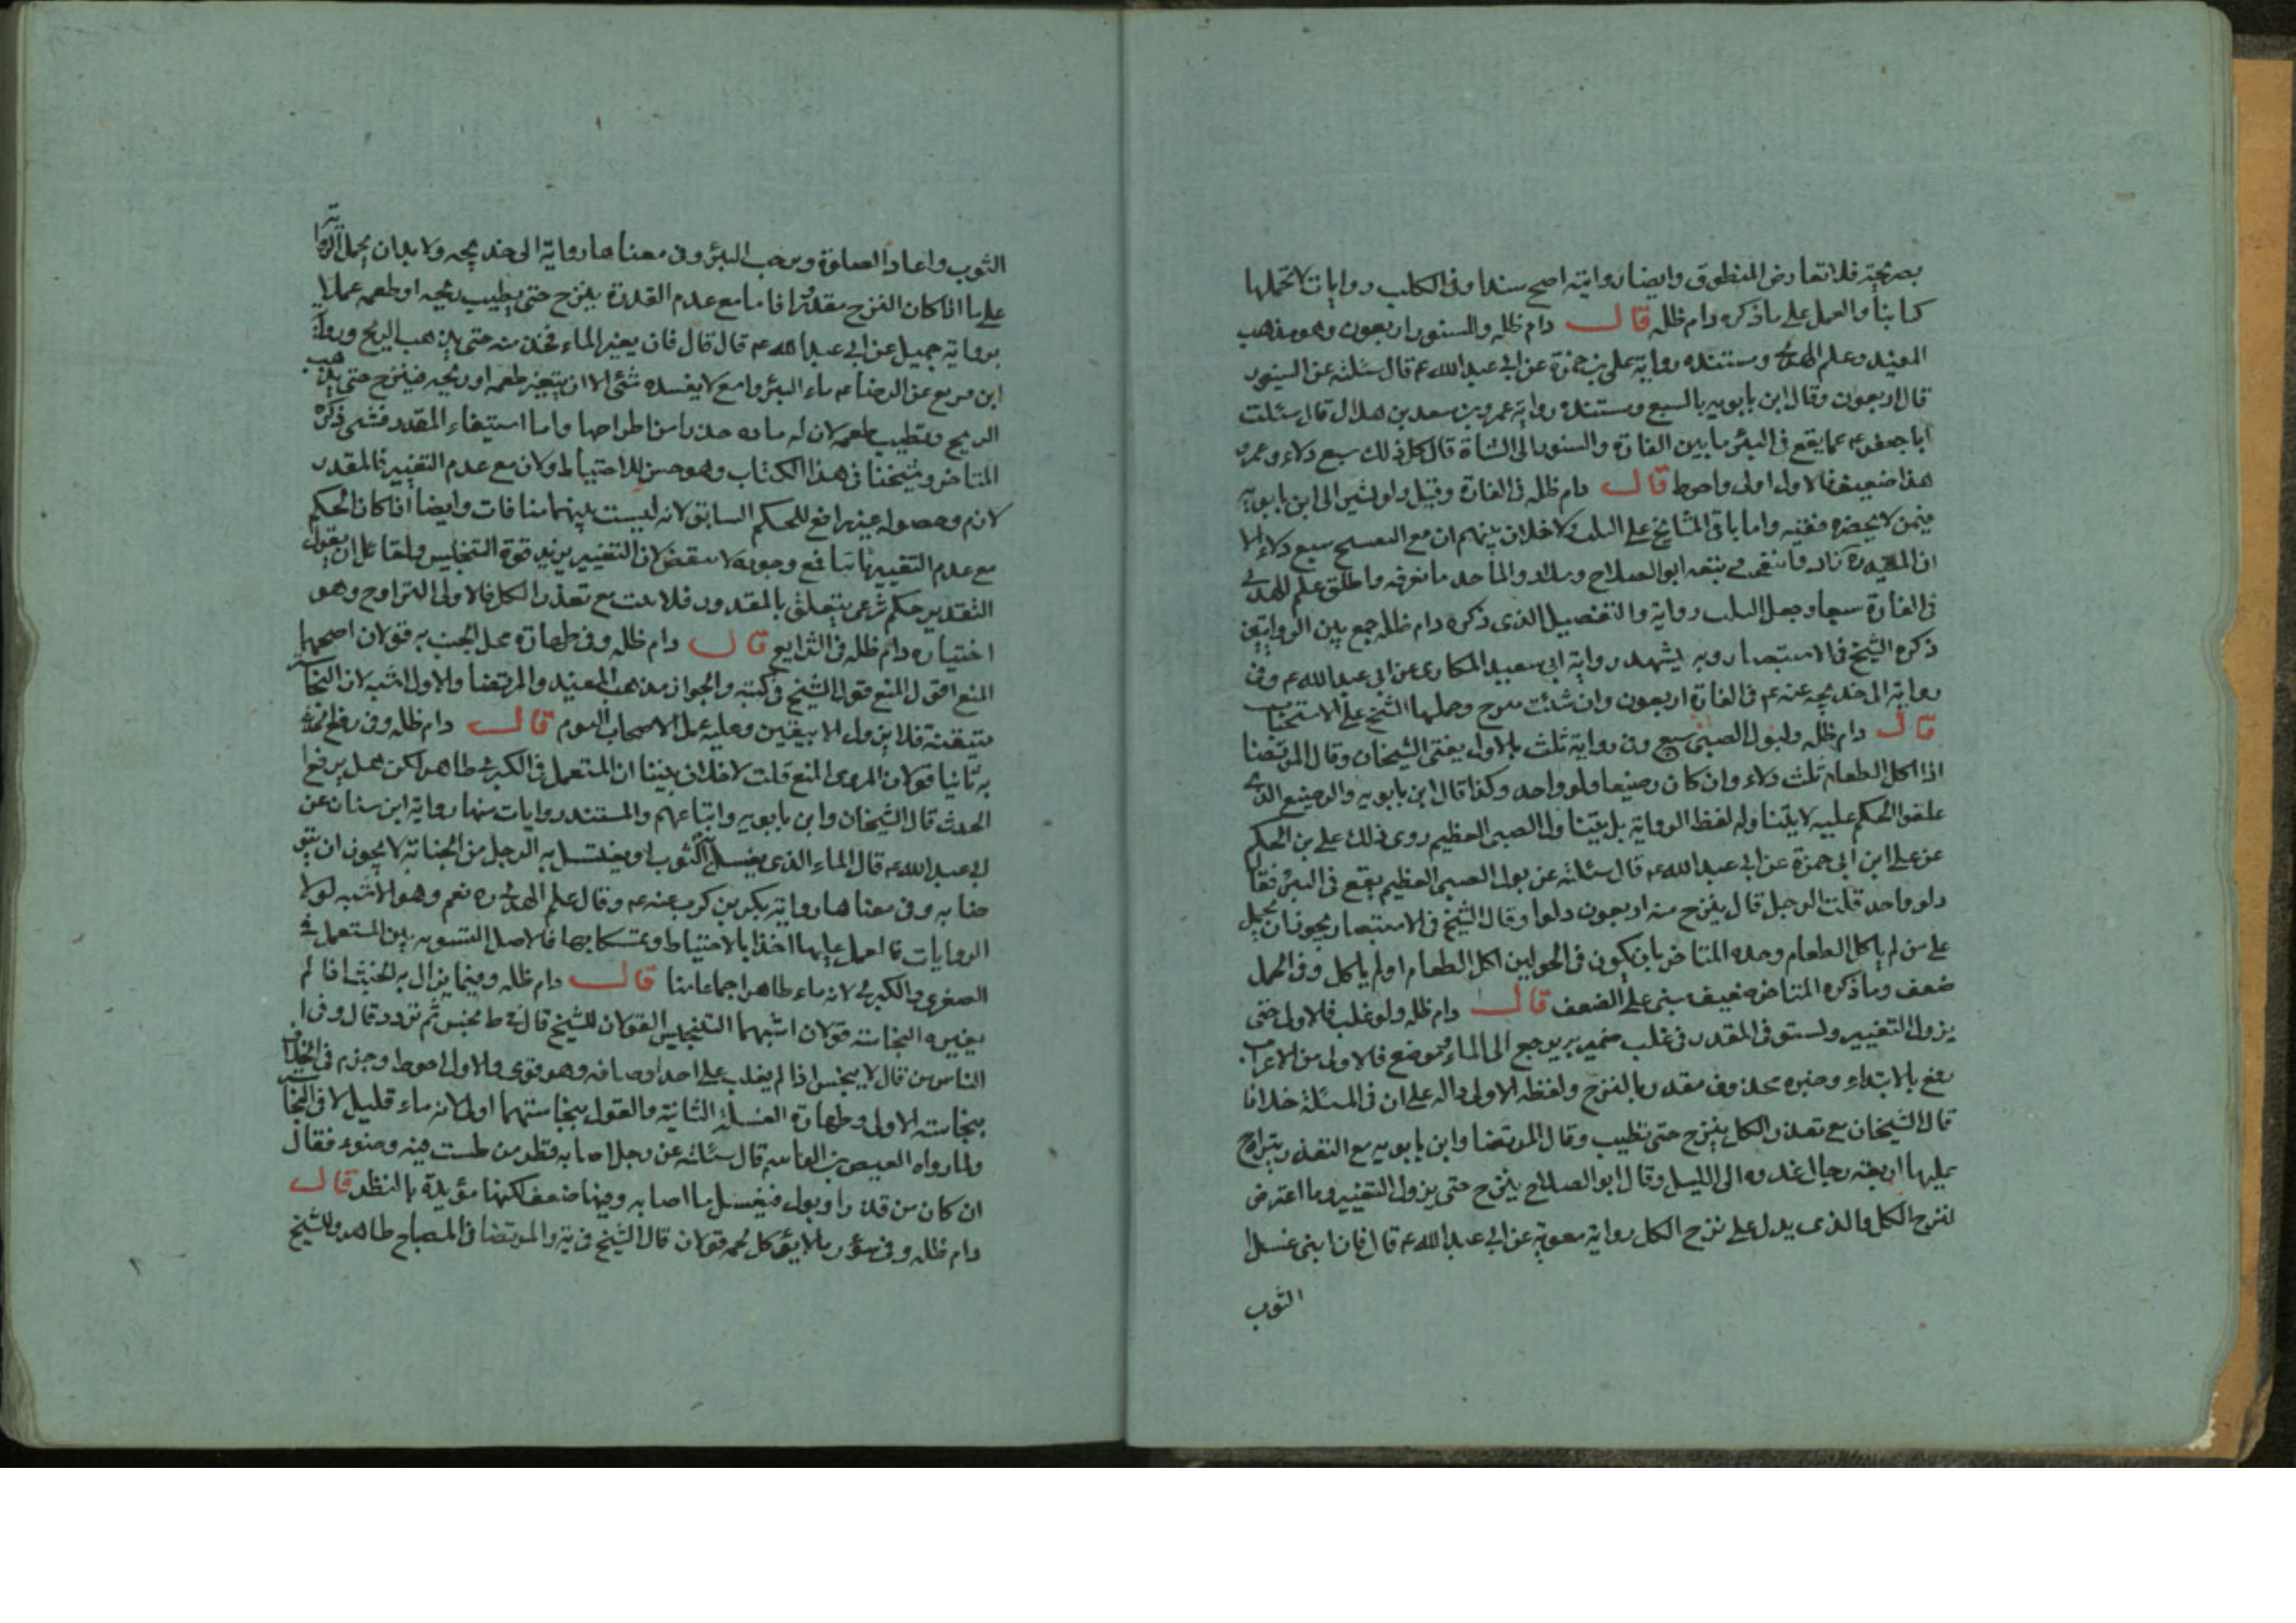 بصريحة فلا تعارض المنطوق وايضا روايته اصح سندا وفى الكلب روايات لا تحملها
كتابنا والعمل على ما ذكره دام ظله قال دام ظله والسنور اربعون وهو مذهب
المفيد وعلم الهدى ومستنده رواية على بن حمزة عن ابى عبد الله عم قال سئلته عن السنور
قال اربعون وقال ابن بابويه بالسبع ومستنده رواية عمرو بن سعد بن هلال قال سئلت
ابا جعفر عم عما يقع فى البئر ما بين الفارة والسنور الى الشاة قال كل ذلك سبع دلاء وعمرو
هذا ضعيف فالاول اولى واحوط قال دام ظله فى الفارة وقيل دلو لشير الى ابن بابويه
فيمن لا يحضره فقيه واما باقى المشايخ على الثلث لا خلاف بينهم ان مع التفسخ سبع دلاء الا
ان المفيد ره زاد وانتفخ وتبعه ابو الصلاح وسلار والماخذ ما نعرفه واطلق علم الهدى
فى الفارة سبعا وجعل الثلث رواية والتفصيل الذى ذكره دام ظله جمع بين الروايتين
ذكره الشيخ فى الاستبصار وبه يشهد رواية ابى سعيد المكارى عن ابى عبد الله عم وفى
رواية ابى خديجه عنه عم فى الفارة اربعون وان شئت وحملها الشيخ على الاستحباب
قال دام ظله ولبول الصبى سبع وفى رواية ثلث بالاول يفتى الشيخان وقال المرتضا
اذا اكل الطعام ثلث دلاء وان كان رضيعا دلو واحد وكذا قال ابن بابويه والرضيع الذى
علقوا الحكم عليه لا يتناوله لفظ الرواية بل يتناول الصبى الفطيم روى ذلك على بن الحكم
عن على ابن ابى حمزة عن ابى عبد الله عم قال سئلته عن بول الصبى الفطيم يقع فى البئر فقال
دلو واحد قلت الرجل قال ينزح منه اربعون دلوا وقال الشيخ فى الاستبصار يجوز ان يحمل
على من لم ياكل الطعام وحده المتاخر بان يكون فى الحولين اكل الطعام او لم ياكل وفى الحمل
ضعف وما ذكره المتاخر ضعيف بنى على الضعف قال دام ظله ولو غلب فالاول حتى
يزول التغيير ولستوفى المقدر فى غلب ضمير يرجع الى الماء وموضع فالاولى من الاعراب
رفع بالابتداء وخبره محذوف مقدر بالنزح ولفظه الاولى داله على ان فى المسئلة خلافا
قال الشيخان مع تعذر الكل ينزح حتى تطيب وقال المرتضا وابن بابويه مع التعذر يتراوح
عليها اربعة رجال غدوه الى الليل وقال ابو الصلاح ينزح حتى يزول التغيير وما اعترض
لنزح الكل والذى يدل على نزح الكل رواية معوية عن ابى عبد الله عم قال فان انتن غسل
الثوب
الثوب واعاد الصلوة ونزحت البئر وفى معناها رواية ابى خديجه ولا بد ان يحمل الرواية
على ما اذا كان النزح مقدورا فاما مع عدم القدرة ينزح حتى يطيب ريحه او طعمه عملا
برواية جميل عن ابى عبد الله عم قال قال فان يغير الماء فخذ منه حتى يذهب الريح ورواية
ابن بزيع عن الرضا عم ماء البئر واسع لا يفسده شئ الا ان يتغير طعمه او ريحه فينزح حتى يذهب
الريح ويطيب طعمه لان له ماده واما استيفاء المقدر فشئ ذكره
المتاخر وشيخنا فى هذا الكتاب وهو حسن للاحتياط ولان مع عدم التغيير فالمقدر
لازم وحصوله غير رافع للحكم السابق لانه ليست بينهما منافات وايضا اذا كان الحكم
مع عدم التغيير ثابتا فمع وجوده لا ينقص لان التغيير يزيد قوة التنجيس ولقائل ان يقول
التقدير حكم شرعى يتعلق بالمقدور فلا يثبت مع تعذر الكل فالاولى التراوح وهو
اختياره دام ظله فى الشرايع قال دام ظله وفى طهارة محل الجنب به قولان اصحهما
المنع اقول المنع قول الشيخ فى كتبه والجواز مذهب المفيد والمرتضا والاول اشبه لان النجاسة
متيقنة فلا يزول الا بيقين وعليه عمل الاصحاب اليوم قال دام ظله وفى رفع الحدث
به ثانيا قولان المروى المنع قلت لا خلاف بيننا ان المستعمل فى الكبرى طاهر لكن هل يرفع
الحدث قال الشيخان وابن بابويه واتباعهم والمستند روايات منها رواية ابن سنان عن
ابى عبد الله عم قال الماء الذى يغسل به الثوب او يغتسل به الرجل من الجنابة لا يجوز ان يتوضا
به وفى معناها رواية بكر بن كرب عنه عم وقال علم الهدى ره نعم وهو الاشبه لولا
الروايات فالعمل عليها اخذا بالاحتياط وتمسكا بها فالاصل التسويه بين المستعمل فى
الصغرى والكبرى لانه ماء طاهر اجماعا منا قال دام ظله وفيما يزال به الخبث اذا لم
يغيره النجاسة قولان اشبههما التنجيس القولان للشيخ قال فى ط نجس ثم تردد قال وفى
الناس من قال لا ينجس اذا لم يغلب على احد اوصافه وهو قوى والاول احوط وجزم فى الخلاف
بنجاسته الاولى وطهارة الغسلة الثانية والقول بنجاستهما اولى لانه ماء قليل لاقى النجاسة
ولما رواه العيص بن القاسم قال سئلته عن رجل اصابه قطر من طست فيه وضوء فقال
ان كان من قذر او بول فيغسل ما اصابه وفيها ضعف لكنها مؤيدة بالنظر قال
دام ظله وفى سؤر ما لا يؤكل لحمه قولان قال الشيخ فى ية والمرتضا فى المصباح طاهر وللشيخ